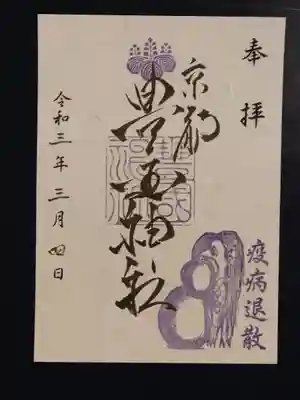 奉拝
京都
豊国神社
令和三年三月四日
疫病退散